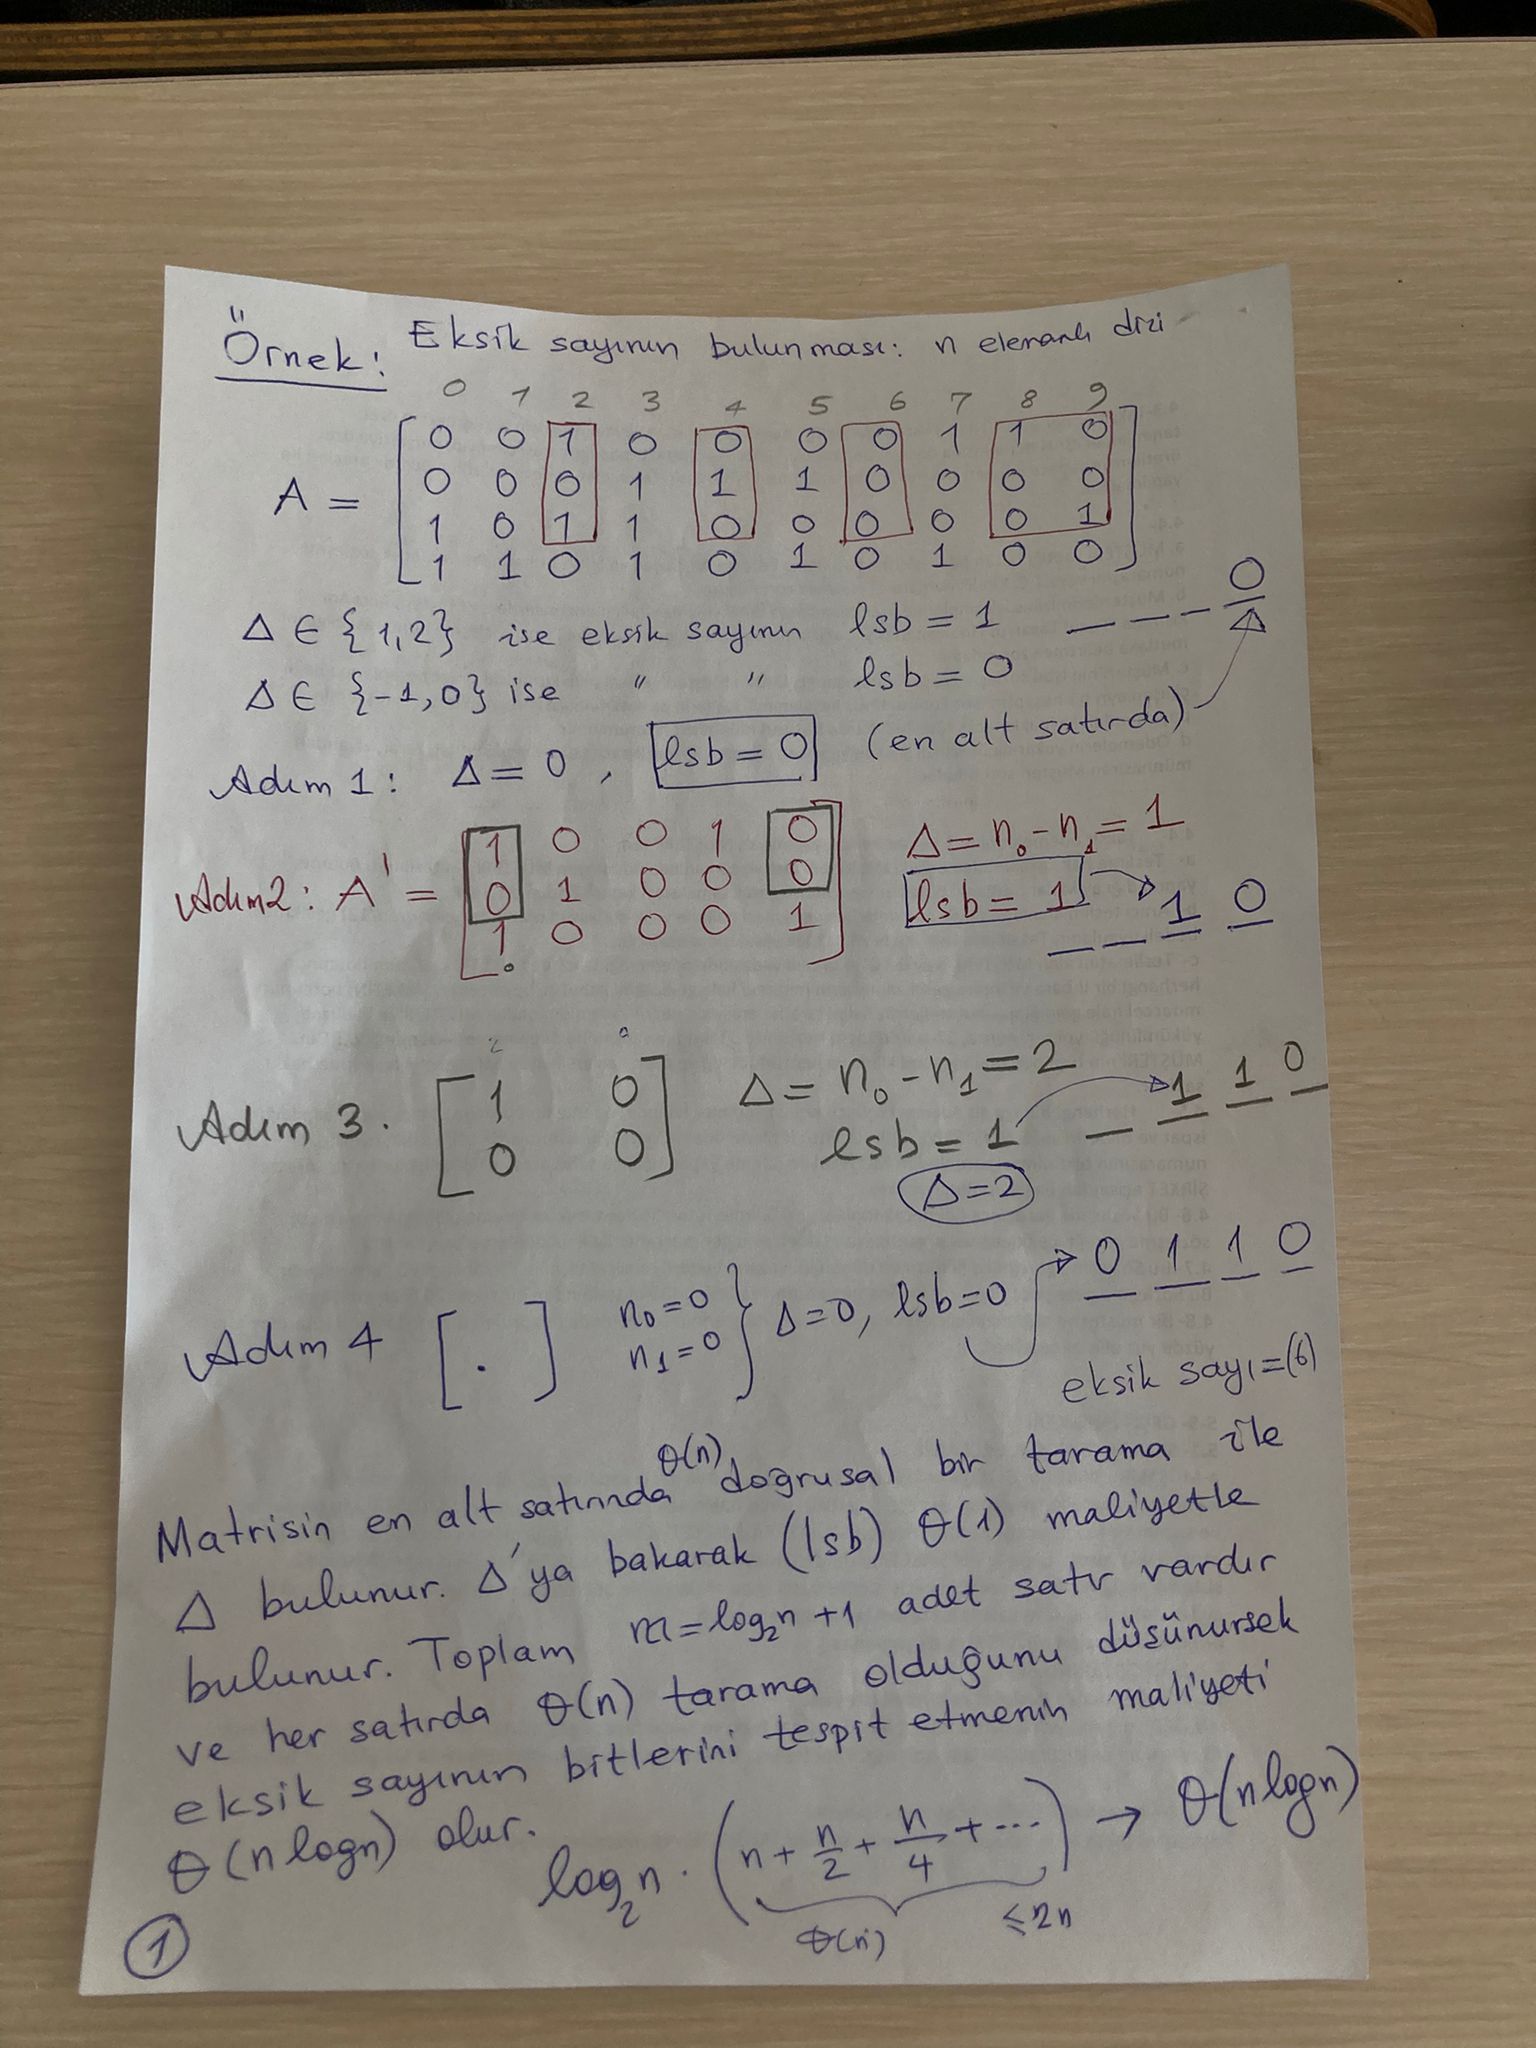 Örnek: Eksik sayının bulunması: n elemanlı dizi
0 1 2 3 4 5 6 7 8 9
A =
0 0 1 0 0 0 0 1 1 0
0 0 0 1 1 1 0 0 0 0
1 0 1 1 0 0 0 0 0 1
1 1 0 1 0 1 0 1 0 0
Δ ∈ {1,2} ise eksik sayının lsb = 1 _ _ _ 0
Δ
Δ ∈ {-1,0} ise " " lsb = 0
Adım 1: Δ = 0, lsb = 0 (en alt satırda)
Adım 2: A' =
1 0 0 1 0
0 1 0 0 0
1 0 0 0 1
Δ = n₀ - n₁ = 1
lsb = 1 → _ _ 1 0
Adım 3.
1 0
0 0
Δ = n₀ - n₁ = 2
lsb = 1 → _ 1 1 0
Δ = 2
Adım 4 [ . ] n₀ = 0
n₁ = 0 } Δ = 0, lsb = 0 → 0 1 1 0
eksik sayı = (6)
Matrisin en alt satırında θ(n) doğrusal bir tarama ile
Δ bulunur. Δ'ya bakarak (lsb) θ(1) maliyetle
bulunur. Toplam m = log₂n + 1 adet satır vardır
ve her satırda θ(n) tarama olduğunu düşünürsek
eksik sayının bitlerini tespit etmenin maliyeti
θ(n logn) olur.
log₂n . (n + n/2 + n/4 + ...) → θ(n logn)
θ(n) ≤ 2n
1